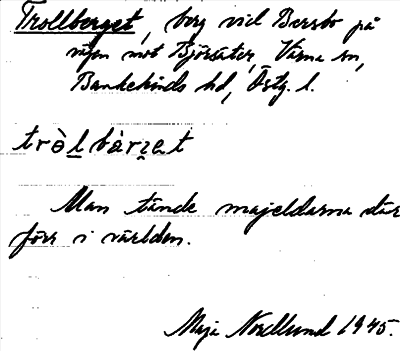 Trollberget, berg vid Bersbo på
vägen mot Björsäter, Värna sn,
Bankekinds hd, Östg. l.
tròl bàrzet
Man tände majeldarna där
förr i världen.
Maja Nordlund 1945.